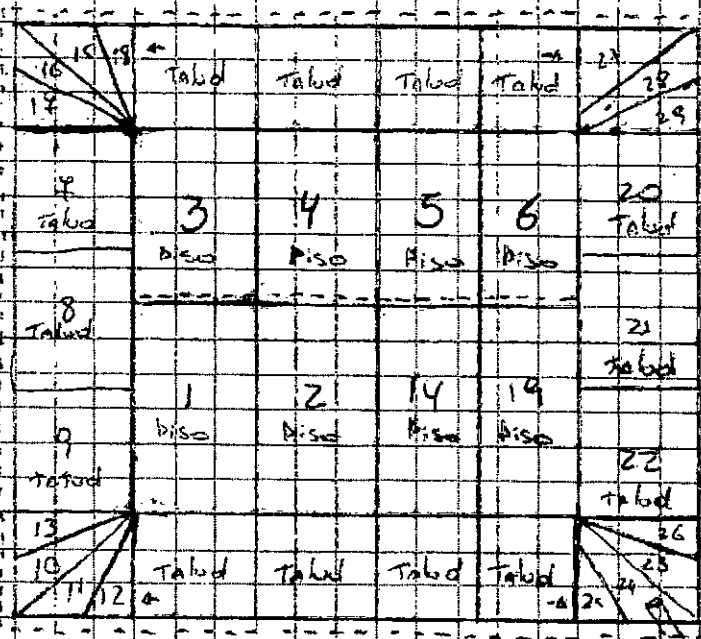 15 18
16
17
Talud Talud Talud Talud
27
28
29
7
Talud
3 4 5 6
Piso Piso Piso Piso
20
Talud
8
Talud
21
Talud
1 2 14 19
Piso Piso Piso Piso
9
Talud
22
Talud
13
10
11 12
Talud Talud Talud Talud
26
23
24
25